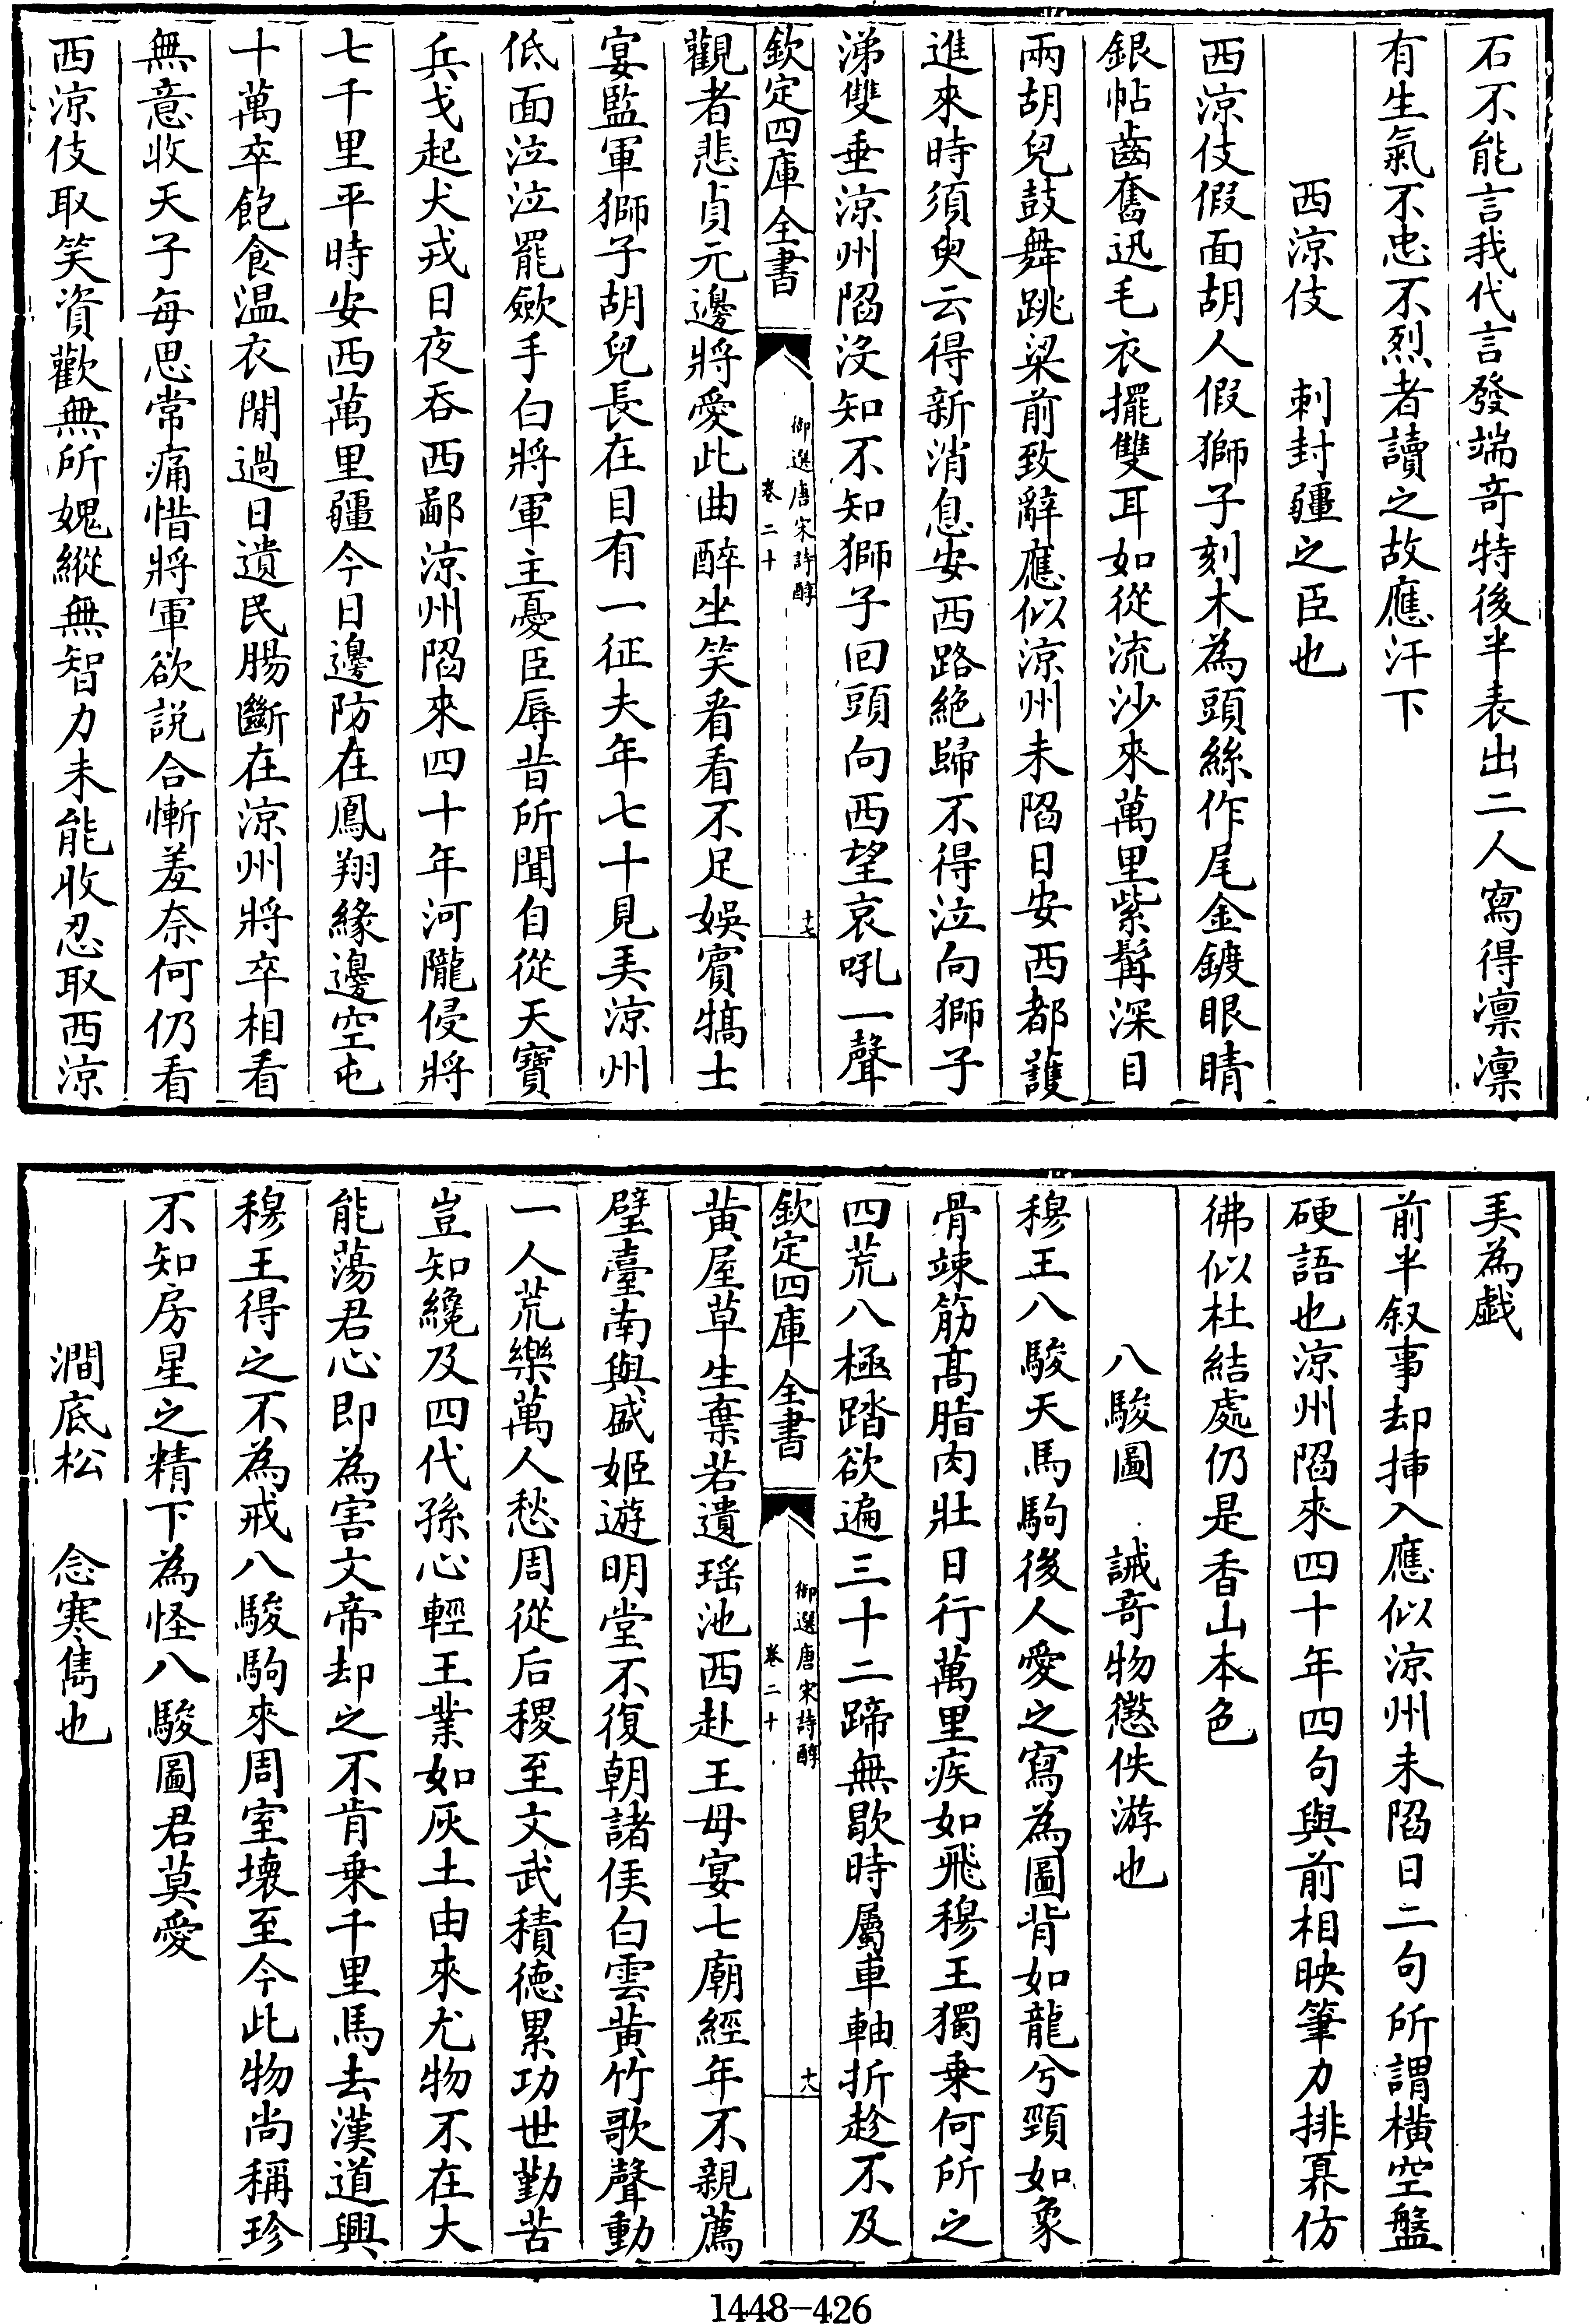 石不能言我代言發端奇特後半表出二人寫得凛凛
有生氣不忠不烈者讀之故應汗下
西涼伎　刺封疆之臣也
西涼伎假面胡人假獅子刻木為頭絲作尾金鍍眼睛
銀帖齒奮迅毛衣擺雙耳如從流沙來萬里紫髯深目
兩胡兒鼓舞跳梁前致辭應似涼州未陷日安西都護
進來時須臾云得新消息安西路絶歸不得泣向獅子
涕雙垂涼州陷沒知不知獅子回頭向西望哀吼一聲
欽定四庫全書
御選唐宋詩醇
卷二十
十七
觀者悲貞元邊將愛此曲醉坐笑看看不足娛賓犒士
宴監軍獅子胡兒長在目有一征夫年七十見弄涼州
低面泣泣罷歛手白將軍主憂臣辱昔所聞自從天寶
兵戈起犬戎日夜吞西鄙涼州陷來四十年河隴侵將
七千里平時安西萬里疆今日邊防在鳳翔緣邊空屯
十萬卒飽食温衣閒過日遺民腸斷在涼州將卒相看
無意收天子每思常痛惜將軍欲說合慚羞奈何仍看
西涼伎取笑資歡無所媿縱無智力未能收忍取西涼
弄為戯
前半叙事却挿入應似涼州未陷日二句所謂橫空盤
硬語也涼州陷來四十年四句與前相映筆力排奡仿
彿似杜結處仍是香山本色
八駿圖　誡奇物懲佚游也
穆王八駿天馬駒後人愛之寫為圖背如龍兮頸如象
骨竦筋髙脂肉壯日行萬里疾如飛穆王獨乘何所之
四荒八極踏欲遍三十二蹄無歇時屬車軸折趁不及
欽定四庫全書
御選唐宋詩醇
卷二十
十八
黄屋草生棄若遺瑤池西赴王母宴七廟經年不親薦
璧臺南與盛姬遊明堂不復朝諸侯白雲黄竹歌聲動
一人荒樂萬人愁周從后稷至文武積德累功世勤苦
豈知纔及四代孫心輕王業如灰土由來尤物不在大
能蕩君心即為害文帝却之不肯乘千里馬去漢道興
穆王得之不為戒八駿駒來周室壞至今此物尚稱珍
不知房星之精下為怪八駿圖君莫愛
澗底松　念寒雋也
1448-426